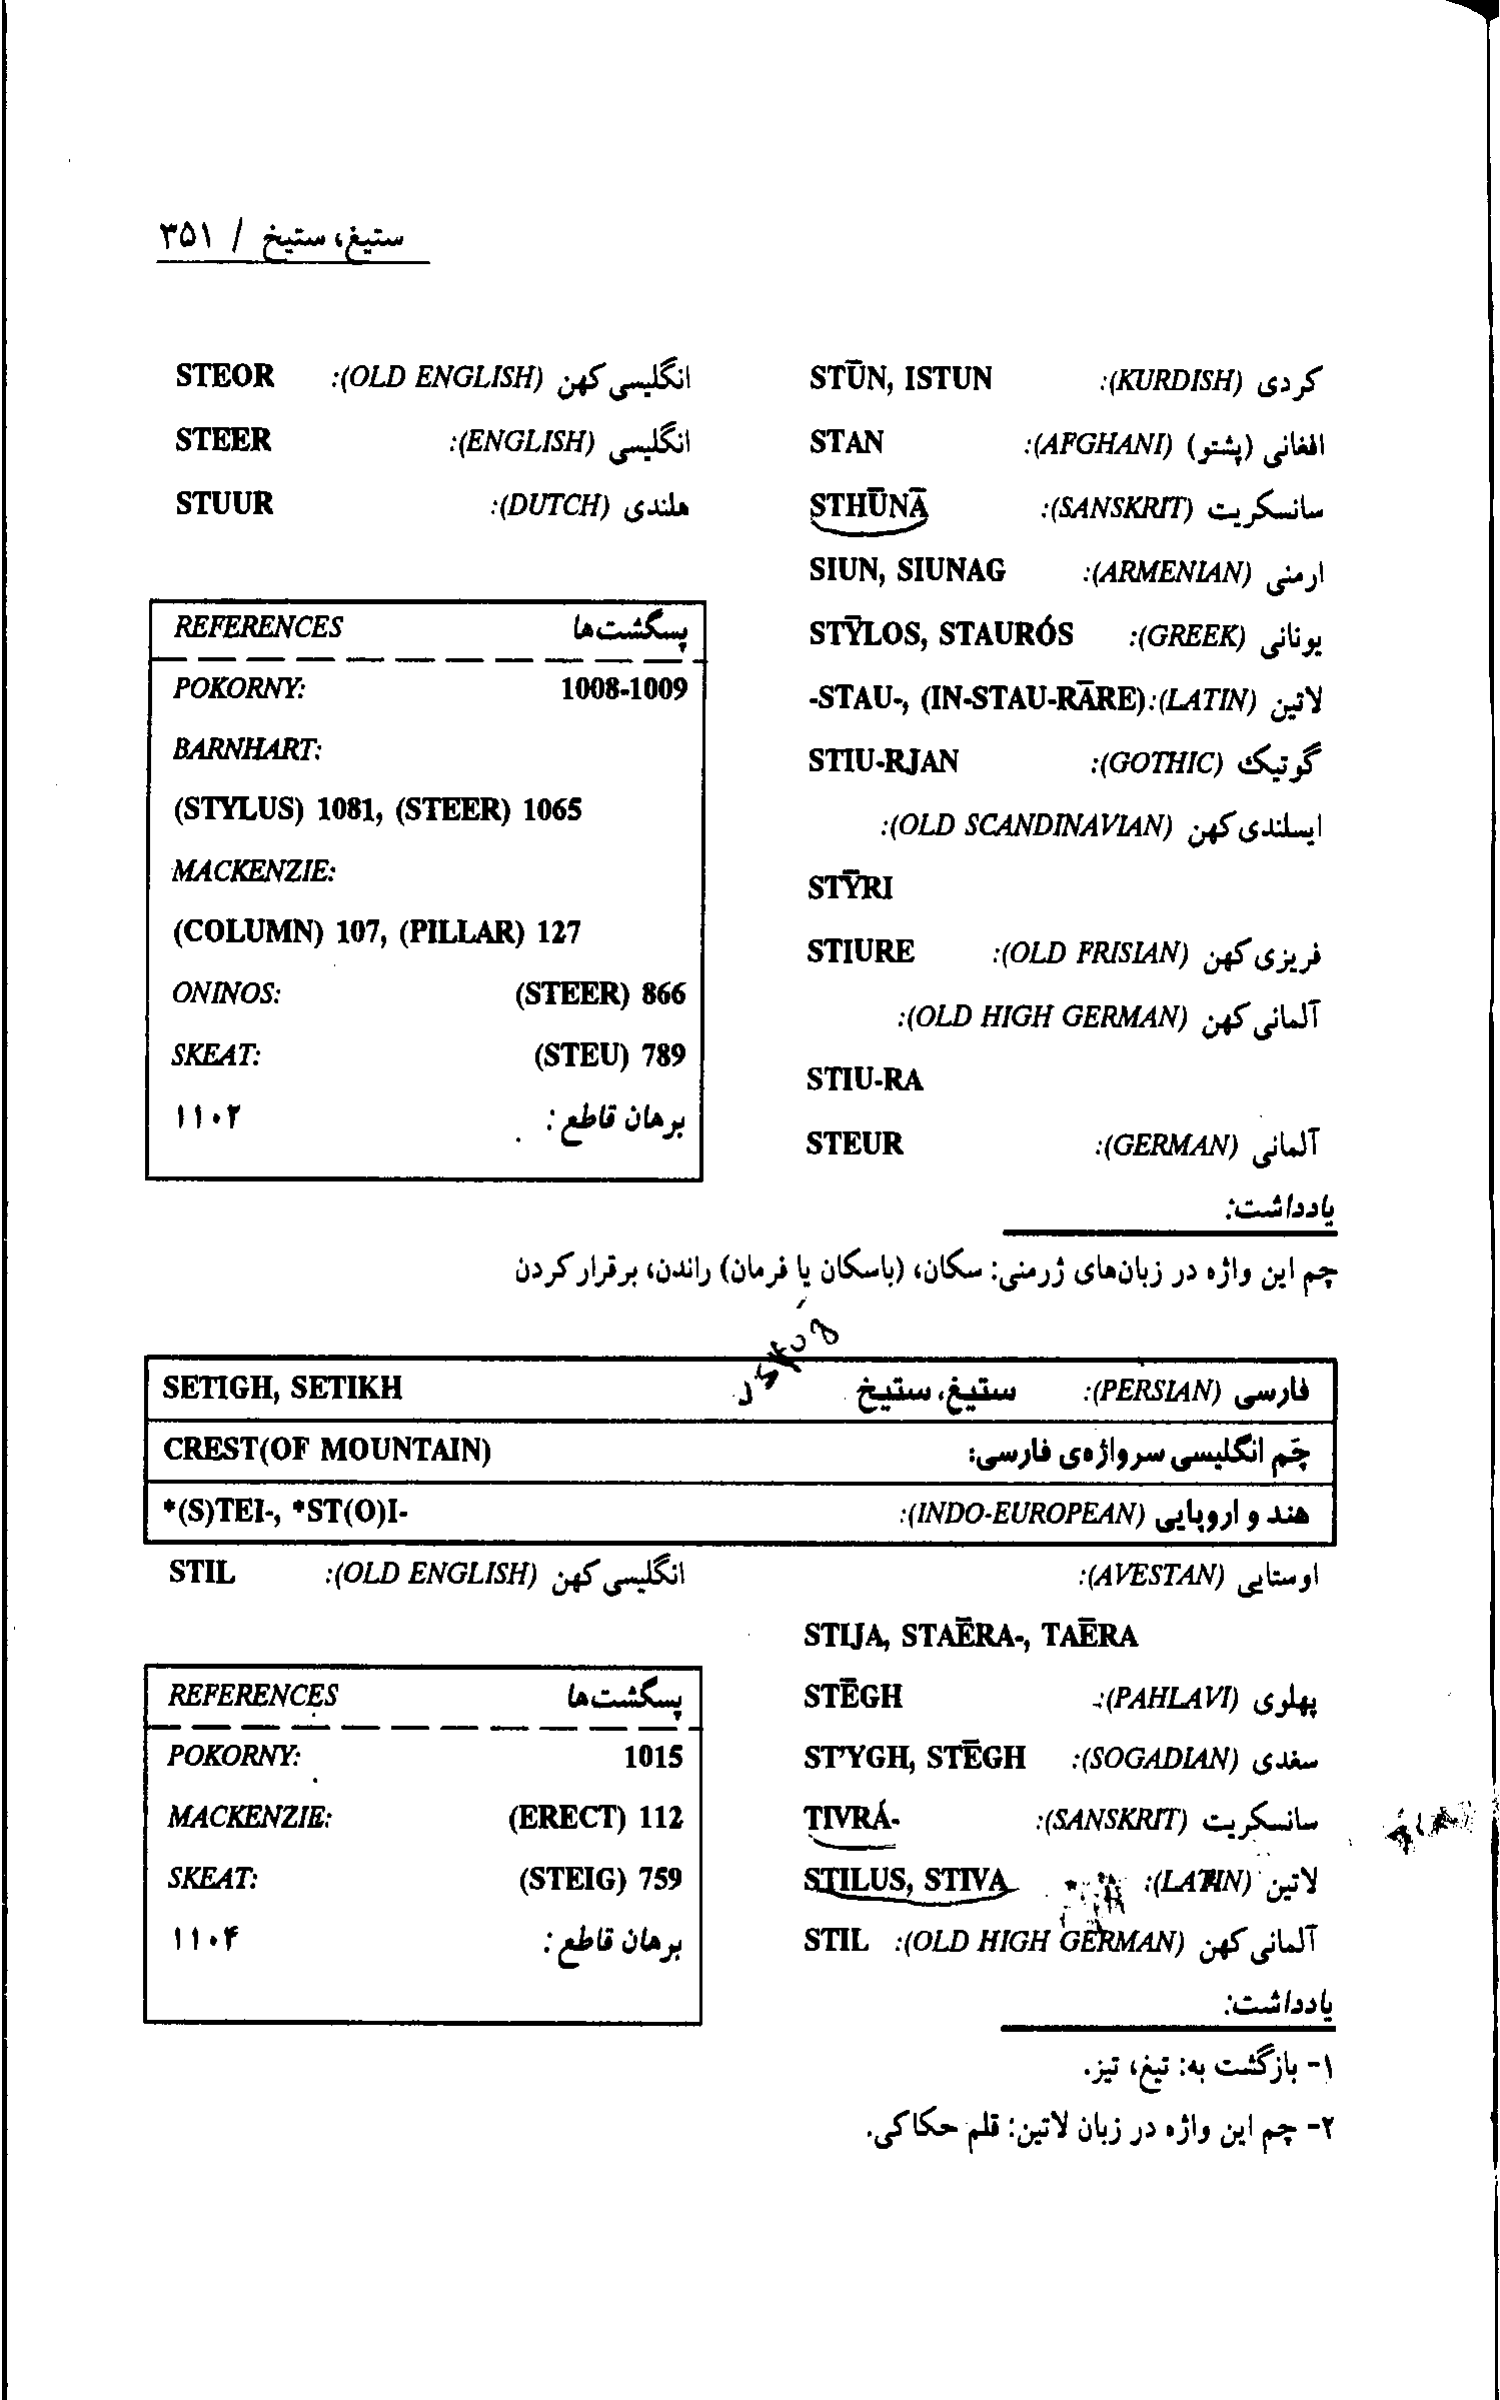 ستیغ، ستیخ / ۳۵۱
کردی (KURDISH): STŪN, ISTUN
افغانی (پشتو) (AFGHANI): STAN
سانسکریت (SANSKRIT): STHŪNĀ
ارمنی (ARMENIAN): SIUN, SIUNAG
یونانی (GREEK): STȲLOS, STAURÓS
لاتین (LATIN): -STAU-, (IN-STAU-RĀRE)
گوتیک (GOTHIC): STIU-RJAN
ایسلندی کهن (OLD SCANDINAVIAN):
STȲRI
فریزی کهن (OLD FRISIAN): STIURE
آلمانی کهن (OLD HIGH GERMAN):
STIU-RA
آلمانی (GERMAN): STEUR
انگلیسی کهن (OLD ENGLISH): STEOR
انگلیسی (ENGLISH): STEER
هلندی (DUTCH): STUUR
REFERENCES پسگشت‌ها
POKORNY: 1008-1009
BARNHART:
(STYLUS) 1081, (STEER) 1065
MACKENZIE:
(COLUMN) 107, (PILLAR) 127
ONINOS: (STEER) 866
SKEAT: (STEU) 789
برهان قاطع: ۱۱۰۲
یادداشت:
چم این واژه در زبان‌های ژرمنی: سکان، (باسکان یا فرمان) راندن، برقرار کردن
فارسی (PERSIAN): ستیغ، ستیخ SETIGH, SETIKH
چَم انگلیسی سرواژه‌ی فارسی: CREST(OF MOUNTAIN)
هند و اروپایی (INDO-EUROPEAN): *(S)TEI-, *ST(O)I-
اوستایی (AVESTAN):
STIJA, STAĒRA-, TAĒRA
پهلوی (PAHLAVI): STĒGH
سغدی (SOGADIAN): ST'YGH, STĒGH
سانسکریت (SANSKRIT): TIVRÁ-
لاتین (LATIN): STILUS, STIVA
آلمانی کهن (OLD HIGH GERMAN): STIL
انگلیسی کهن (OLD ENGLISH): STIL
REFERENCES پسگشت‌ها
POKORNY: 1015
MACKENZIE: (ERECT) 112
SKEAT: (STEIG) 759
برهان قاطع: ۱۱۰۴
یادداشت:
۱- بازگشت به: تیغ، تیز.
۲- چم این واژه در زبان لاتین: قلم حکاکی.